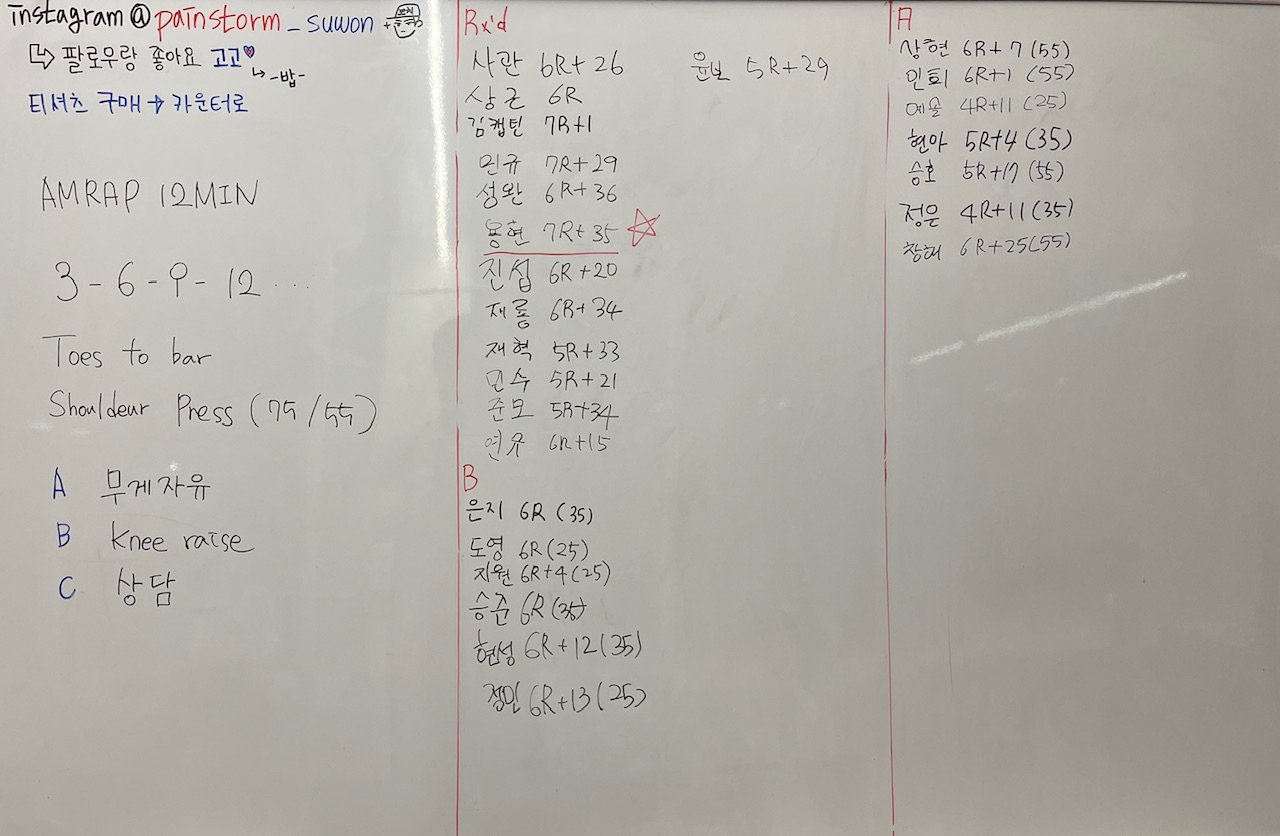 instagram @painstorm_suwon
팔로우랑 좋아요 고고
-밥-
티셔츠 구매 → 카운터로
AMRAP 12MIN
3 - 6 - 9 - 12 ...
Toes to bar
Shouldeur Press (75/55)
A 무게자유
B Knee raise
C 상담
Rx'd
사관 6R+26
상근 6R
김캡틴 7R+1
민규 7R+29
성완 6R+36
용현 7R+35
진섭 6R+20
재룡 6R+34
재혁 5R+33
민수 5R+21
준모 5R+34
연규 6R+15
윤보 5R+29
B
은지 6R (35)
도영 6R (25)
지원 6R+4 (25)
승준 6R (35)
현성 6R+12 (35)
정민 6R+13 (25)
A
상현 6R+7 (55)
인회 6R+1 (55)
예솔 4R+11 (25)
현아 5R+4 (35)
승호 5R+17 (55)
정은 4R+11 (35)
창해 6R+25 (55)